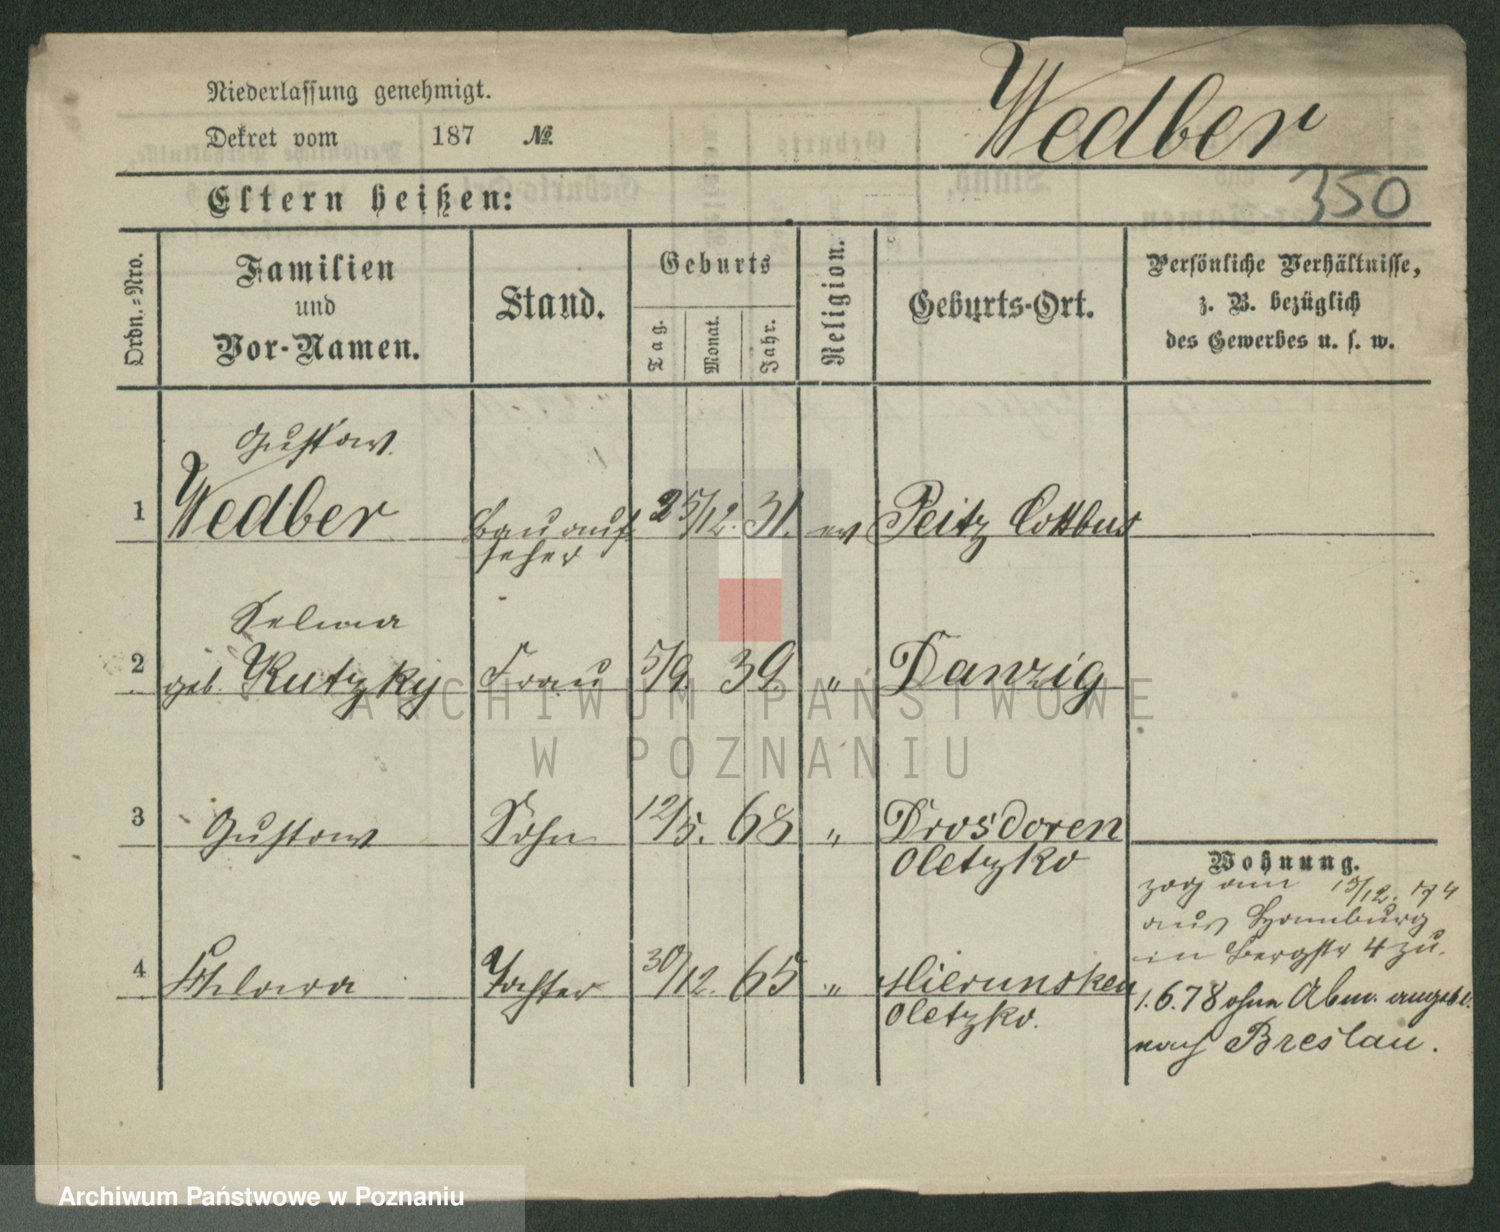 Niederlassung genehmigt.
Wedber
Dekret vom 187 №
350
Eltern heißen:
Ordn.-Nro.
Familien
und
Vor-Namen.
Stand.
Geburts
Tag.
Monat.
Jahr.
Religion.
Geburts-Ort.
Persönliche Verhältnisse,
z. B. bezüglich
des Gewerbes u. s. w.
Gustav
1 Wedber Bauauf 25/12. 31. ev Peitz Cottbus
seher
Selma
2 geb. Kutzky Frau 5/9. 39. " Danzig
3 Gustav Sohn 12/5. 68 "
Oletzko
4 Tochter 30/12. 65 " Mierunsken
Oletzko.
Wohnung.
zog am 13/12. 74
aus
in Bergstr 4 zu.
1.6.78 ohne Abm. angebl.
nach Breslau.
ARCHIWUM PAŃSTWOWE
W POZNANIU
Archiwum Państwowe w Poznaniu